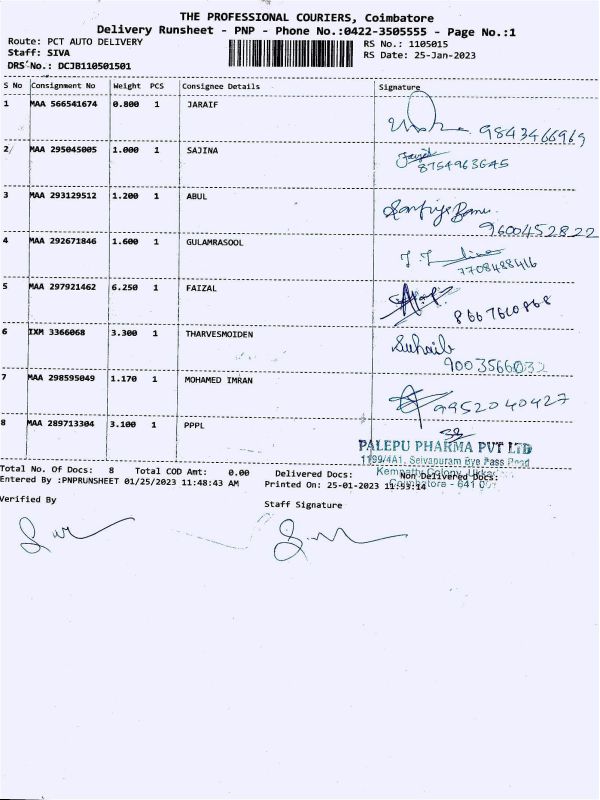 THE PROFESSIONAL COURIERS, Coimbatore
Delivery Runsheet - PNP - Phone No.:0422-3505555 - Page No.:1
Route: PCT AUTO DELIVERY RS No.: 1105015
Staff: SIVA RS Date: 25-Jan-2023
DRS No.: DCJB110501501
S No Consignment No Weight PCS Consignee Details Signature
1 MAA 566541674 0.800 1 JARAIF
9843466969
2 MAA 295045005 1.000 1 SAJINA
8754963645
3 MAA 293129512 1.200 1 ABUL
9600452822
4 MAA 292671846 1.600 1 GULAMRASOOL
7708488416
5 MAA 297921462 6.250 1 FAIZAL
8667610868
6 IXM 3366068 3.300 1 THARVESMOIDEN
Suhaib
9003566032
7 MAA 298595049 1.170 1 MOHAMED IMRAN
9952040427
8 MAA 289713304 3.100 1 PPPL
PALEPU PHARMA PVT LTD
1199/4A1, Selvapuram Bye Pass Road
Kempatty Colony, Ukkadam
Coimbatore - 641 001
Total No. Of Docs: 8 Total COD Amt: 0.00 Delivered Docs: Non Delivered Docs:
Entered By :PNPRUNSHEET 01/25/2023 11:48:43 AM Printed On: 25-01-2023 11:53:14
Verified By Staff Signature